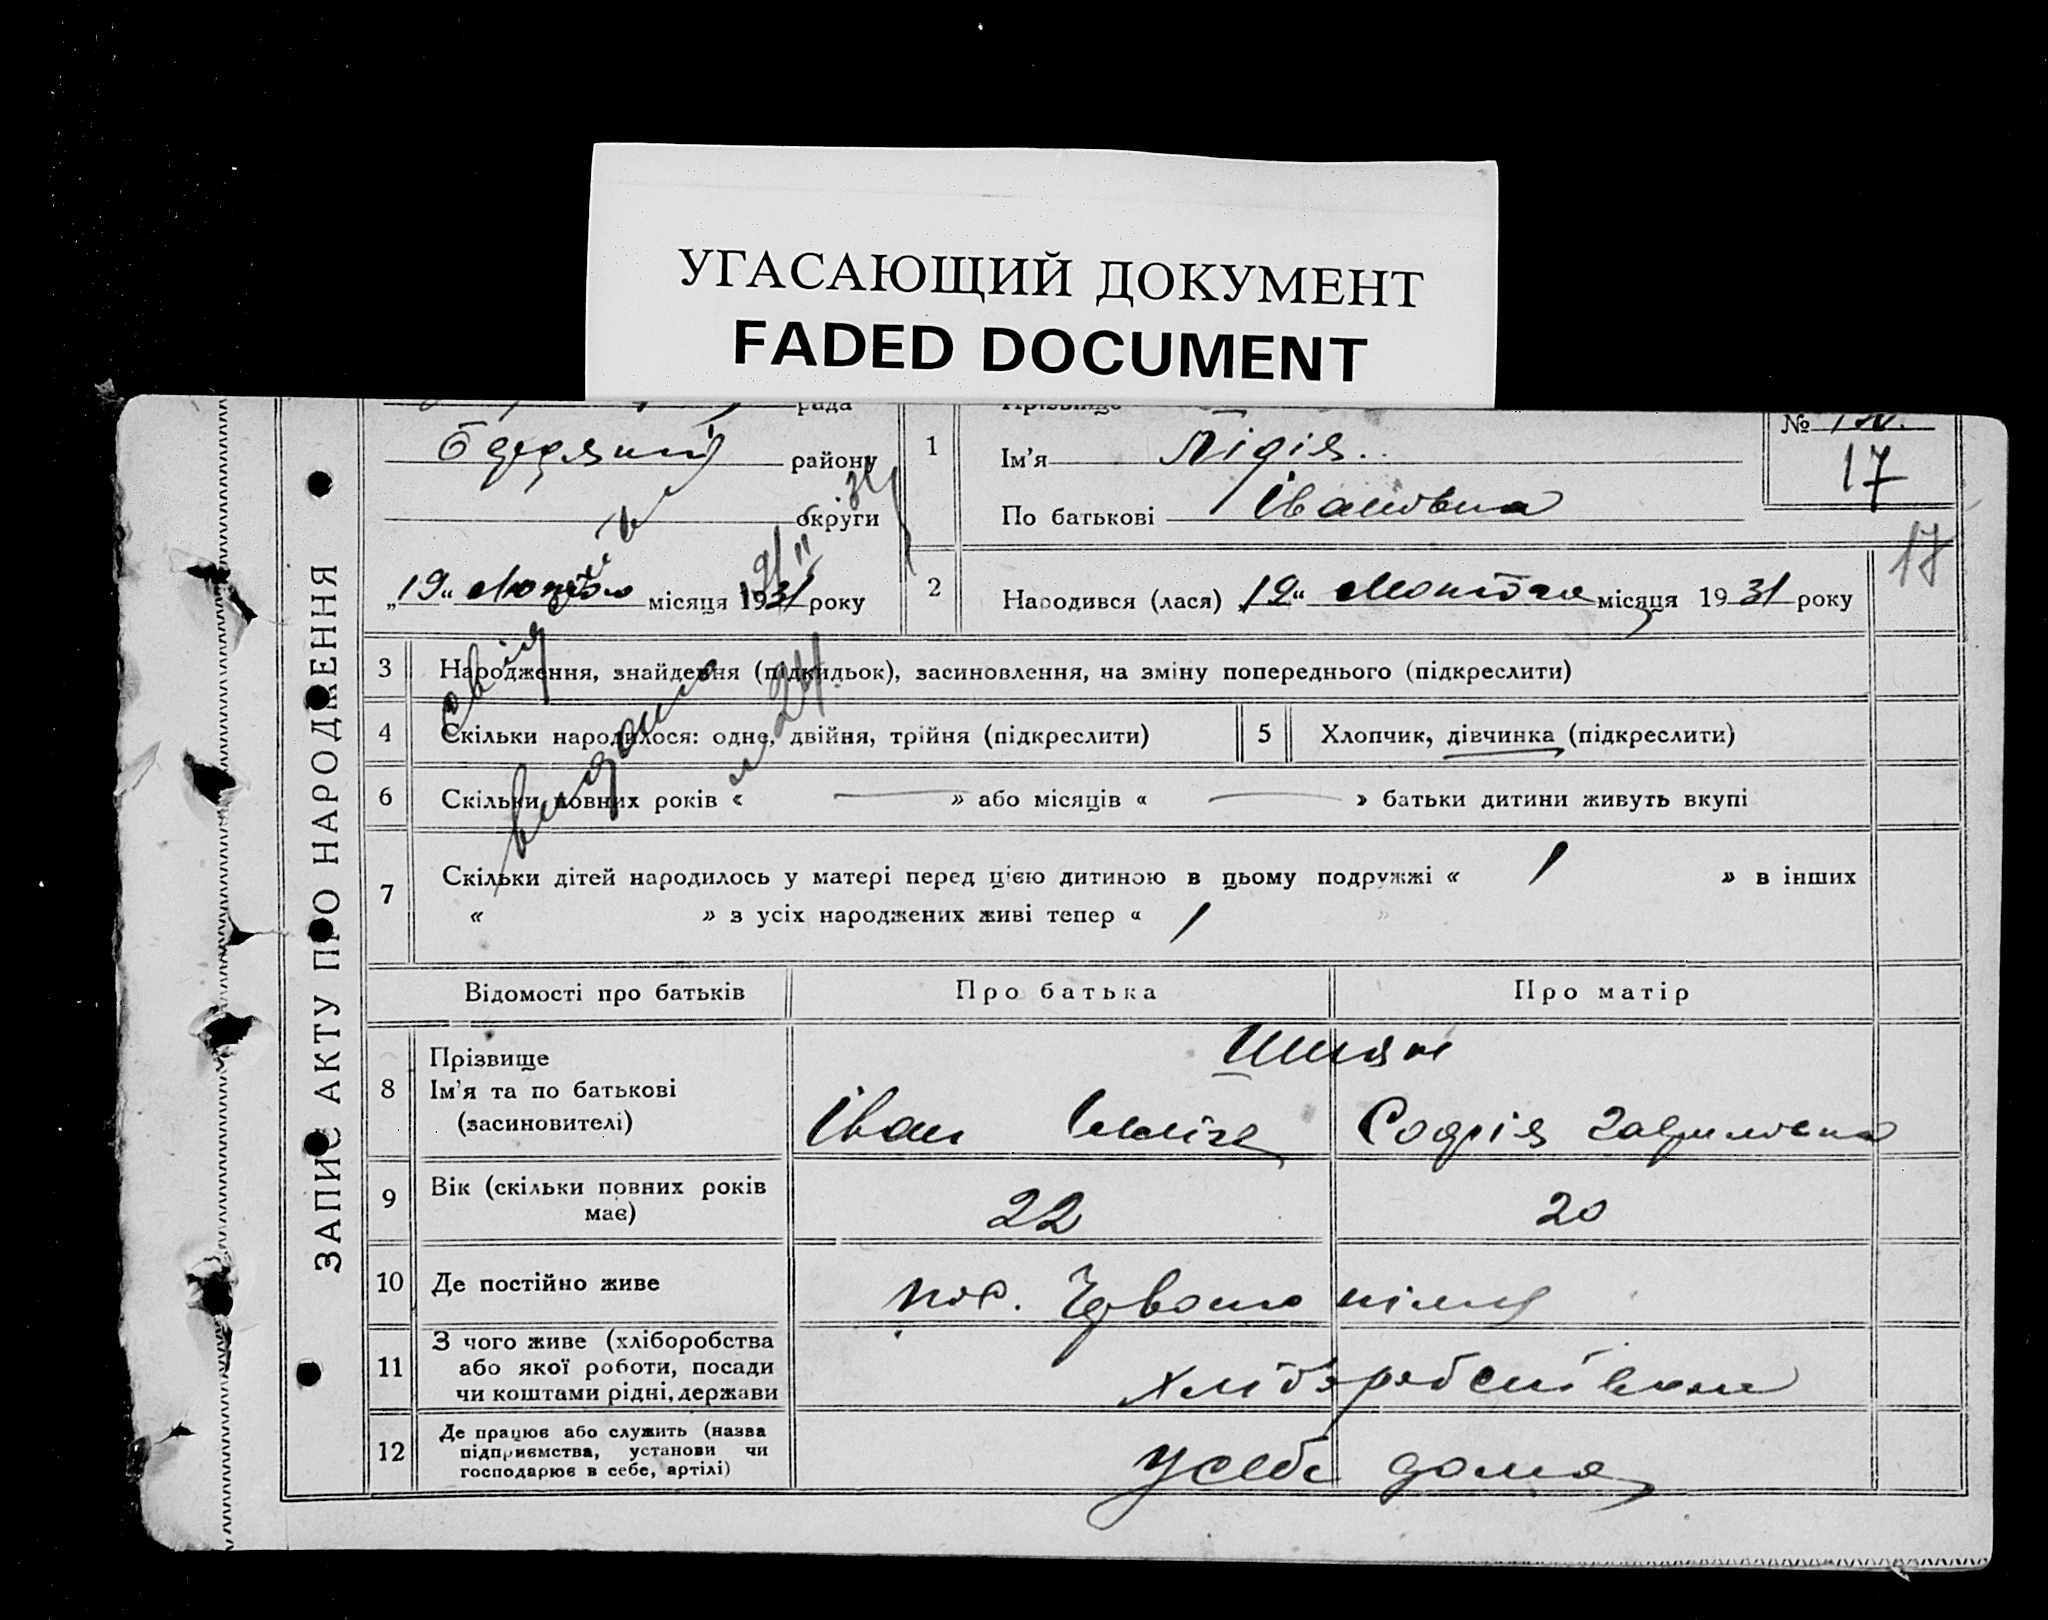 УГАСАЮЩИЙ ДОКУМЕНТ
FADED DOCUMENT
ЗАПИС АКТУ ПРО НАРОДЖЕННЯ
рада
району
округи
„19“ Лютого місяця 1931 року
1
Прізвище
Ім'я Лідія
По батькові Івановна
№
17
17
2 Народився (лася) „12“ Лютого місяця 1931 року
3 Народження, знайдення (підкидьок), засиновлення, на зміну попереднього (підкреслити)
4 Скільки народилося: одне, двійня, трійня (підкреслити)
5 Хлопчик, дівчинка (підкреслити)
6 Скільки повних років « — » або місяців « — » батьки дитини живуть вкупі
7 Скільки дітей народилось у матері перед цією дитиною в цьому подружжі « 1 » в інших
« » з усіх народжених живі тепер « 1 »
видано
Відомості про батьків Про батька Про матір
8 Прізвище
Ім'я та по батькові
(засиновителі)
Іван
Софія Гавриловна
9 Вік (скільки повних років має) 22 20
10 Де постійно живе пос. Червоно
11 З чого живе (хліборобства
або якої роботи, посади
чи коштами рідні, держави
хліборобством
12 Де працює або служить (назва
підприємства, установи чи
господарює в себе, артілі)
У себе дома